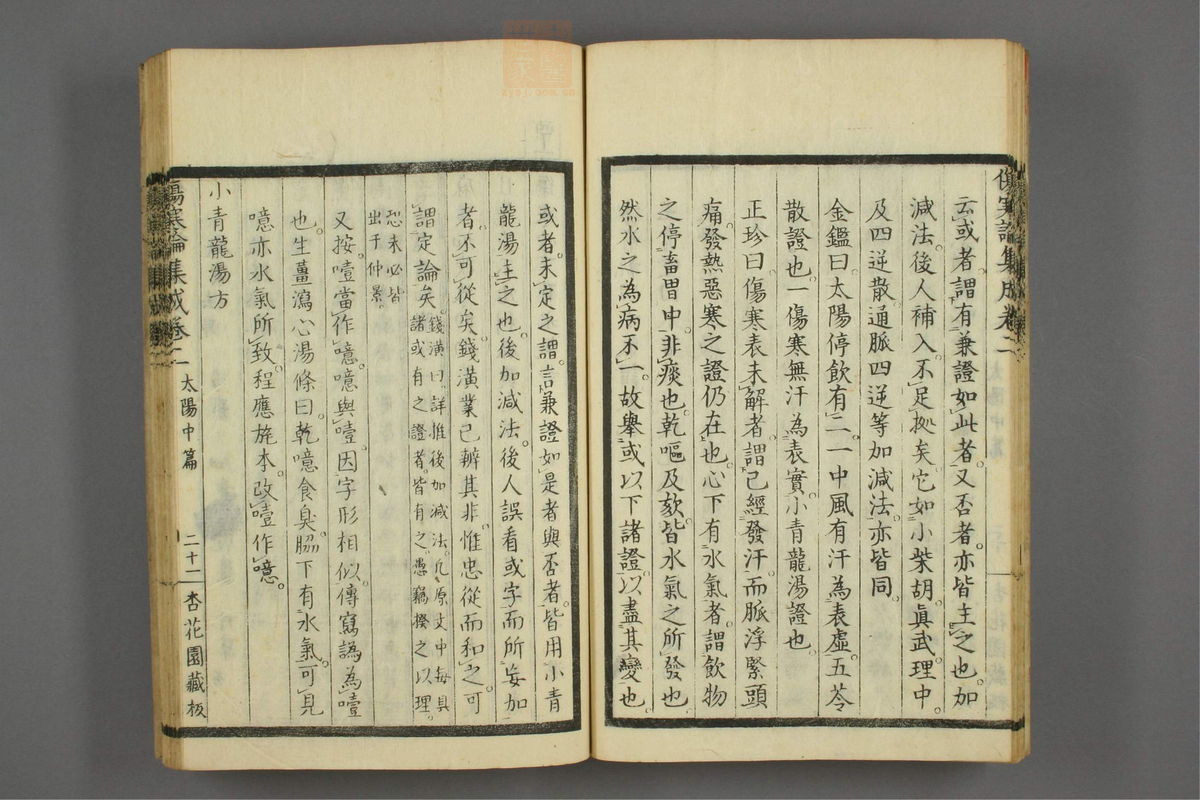 傷寒論集成卷二
云或者謂有兼證如此者又否者亦皆主之也加
減法後人補入不足拠矣它如小柴胡眞武理中
及四逆散通脈四逆等加減法亦皆同
金鑑曰太陽停飲有二一中風有汗為表虛五苓
散證也一傷寒無汗為表實小青龍湯證也
正珍曰傷寒表未解者謂已經發汗而脈浮緊頭
痛發熱惡寒之證仍在也心下有水氣者謂飲物
之停畜胃中非痰也乾嘔及欬皆水氣之所發也
然水之為病不一故舉或以下諸證以盡其變也
或者未定之謂言兼證如是者與否者皆用小青
龍湯主之也後加減法後人誤看或字而所妄加
者不可從矣錢潢業已辨其非惟忠從而和之可
謂定論矣錢潢曰詳推後加減法凡原文中每具
諸或有之證者皆有之愚竊揆之以理
恐未必皆
出于仲景
又按噎當作噫噫與噎因字形相似傳寫譌為噎
也生薑瀉心湯條曰乾噫食臭脇下有水氣可見
噫亦水氣所致程應旄本改噎作噫
小青龍湯方
傷寒論集成卷二 太陽中篇 二十二 杏花園藏板